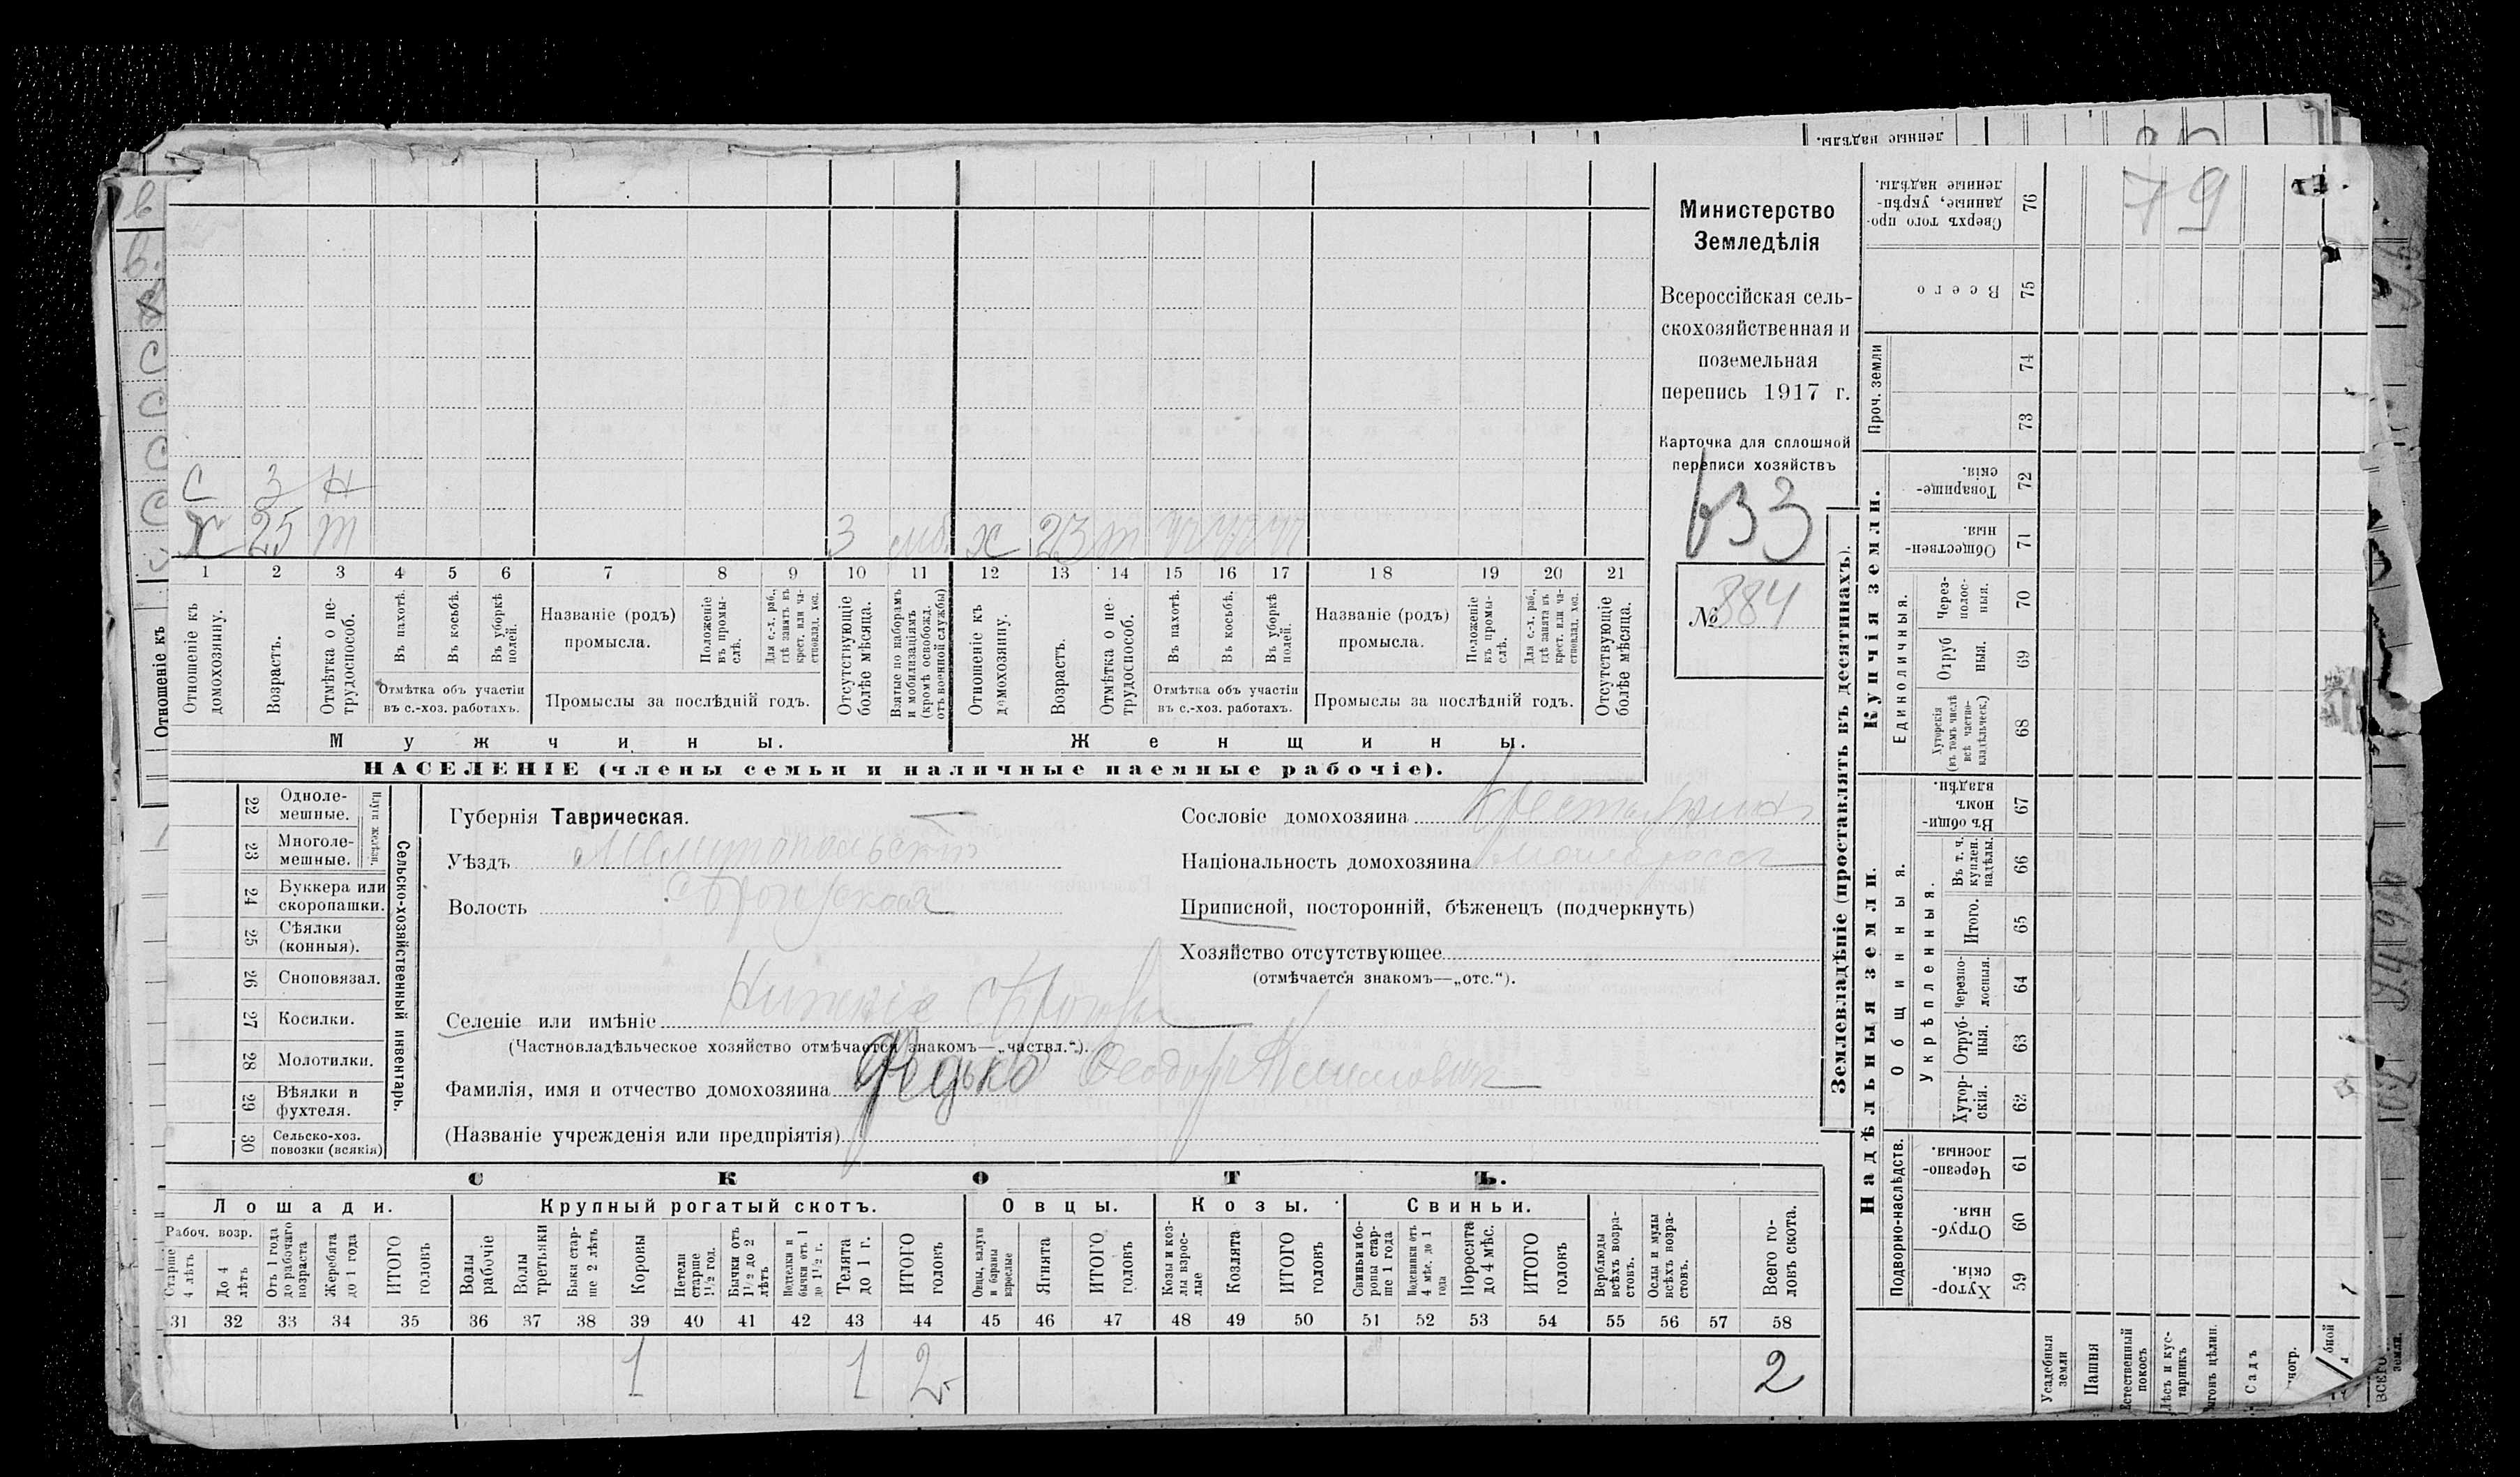 79
С 3 Н
Х 25 т 3 моб. х 23 т
1 2 3 4 5 6 7 8 9 10 11 12 13 14 15 16 17 18 19 20 21
Отношеніе къ домохозяину.
Возрастъ.
Отмѣтка о не-трудоспособ.
Въ пахотѣ.
Въ косьбѣ.
Въ уборкѣ полей.
Отмѣтка объ участіи въ с.-хоз. работахъ.
Названіе (родъ) промысла.
Положеніе въ промы-слѣ.
Для с.-х. раб., гдѣ занятъ въ крест. или ча-стновлад. хоз.
Промыслы за послѣдній годъ.
Отсутствующіе болѣе мѣсяца.
Взятые по наборамъ и мобилизаціямъ (кромѣ освобожд. отъ военной службы)
Отношеніе къ домохозяину.
Возрастъ.
Отмѣтка о не-трудоспособ.
Въ пахотѣ.
Въ косьбѣ.
Въ уборкѣ полей.
Отмѣтка объ участіи въ с.-хоз. работахъ.
Названіе (родъ) промысла.
Положеніе въ промы-слѣ.
Для с.-х. раб., гдѣ занята въ крест. или ча-стновлад. хоз.
Промыслы за послѣдній годъ.
Отсутствующіе болѣе мѣсяца.
Мужчины.
Женщины.
НАСЕЛЕНІЕ (члены семьи и наличные наемные рабочіе).
Министерство
Земледѣлія
Всероссійская сель-
скохозяйственная и
поземельная
перепись 1917 г.
Карточка для сплошной
переписи хозяйствъ
633
№ 384
22 Одноле-мешные.
23 Многоле-мешные.
Плуги желѣзн.
24 Буккера или скоропашки.
25 Сѣялки (конныя).
26 Сноповязал.
27 Косилки.
28 Молотилки.
29 Вѣялки и фухтеля.
30 Сельско-хоз. повозки (всякія)
Сельско-хозяйственный инвентарь.
Губернія Таврическая.
Уѣздъ Мелитопольскій
Волость
Селеніе или имѣніе Нижніе
(Частновладѣльческое хозяйство отмѣчается знакомъ—„частвл.“).
Фамилія, имя и отчество домохозяина Федько Феодор
(Названіе учрежденія или предпріятія)
Сословіе домохозяина крестьянин
Національность домохозяина
Приписной, посторонній, бѣженецъ (подчеркнуть)
Хозяйство отсутствующее
(отмѣчается знакомъ—„отс.“).
СКОТЪ.
Лошади. Крупный рогатый скотъ. Овцы. Козы. Свиньи.
Рабоч. возр.
Старше 4 лѣтъ
До 4 лѣтъ
Отъ 1 года до рабочаго возраста
Жеребята до 1 года
ИТОГО головъ
Волы рабочіе
Волы третьяки
Быки стар-ше 2 лѣтъ
Коровы
Нетели старше 1½ год.
Бычки отъ 1½ до 2 лѣтъ
бычки отъ 1 до 1½ г.
Телята до 1 г.
ИТОГО головъ
Овцы, валухи и бараны взрослые
Ягнята
ИТОГО головъ
Козы и коз-лы взрос-лые
Козлята
ИТОГО головъ
Свиньи и бо-ровы стар-ше 1 года
Подсвинки отъ 4 мѣс. до 1 года
Поросята до 4 мѣс.
ИТОГО головъ
Верблюды всѣхъ возра-стовъ.
Ослы и мулы всѣхъ возра-стовъ.
Всего го-ловъ скота.
31 32 33 34 35 36 37 38 39 40 41 42 43 44 45 46 47 48 49 50 51 52 53 54 55 56 57 58
1 1 2 2
Землевладѣніе (проставлять въ десятинахъ).
Надѣльныя земли. Купчія земли. Проч. земли
Подворно-наслѣдств.
Общинныя.
Укрѣпленныя.
Единоличныя.
59 Хутор-скія.
60 Отруб-ныя.
61 Черезпо-лосныя.
62 Хутор-скія.
63 Отруб-ныя.
64 Черезпо-лосныя.
65 Итого.
66 Въ т. ч. куплен. надѣлы.
67 Въ общин-номъ владѣн.
68 Хуторскія (въ томъ числѣ всѣ частно-владѣльческ.)
69 Отруб ныя.
70 Через-полос-ныя.
71 Обществен-ныя.
72 Товарище-скія.
73
74
75 Всего
76 Сверхъ того про-данные, укрѣп-ленные надѣлы.
Усадебныя земли
Пашня
Естественный покосъ
Лѣсъ и кус-тарникъ
Садъ
ленные надѣлы.
Отношеніе къ
ВСЕГО земли.